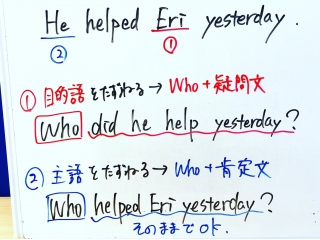 He helped Eri yesterday.
② ①
① 目的語をたずねる→ Who+疑問文
Who did he help yesterday?
② 主語をたずねる→ Who+肯定文
Who helped Eri yesterday?
そのままでOK.